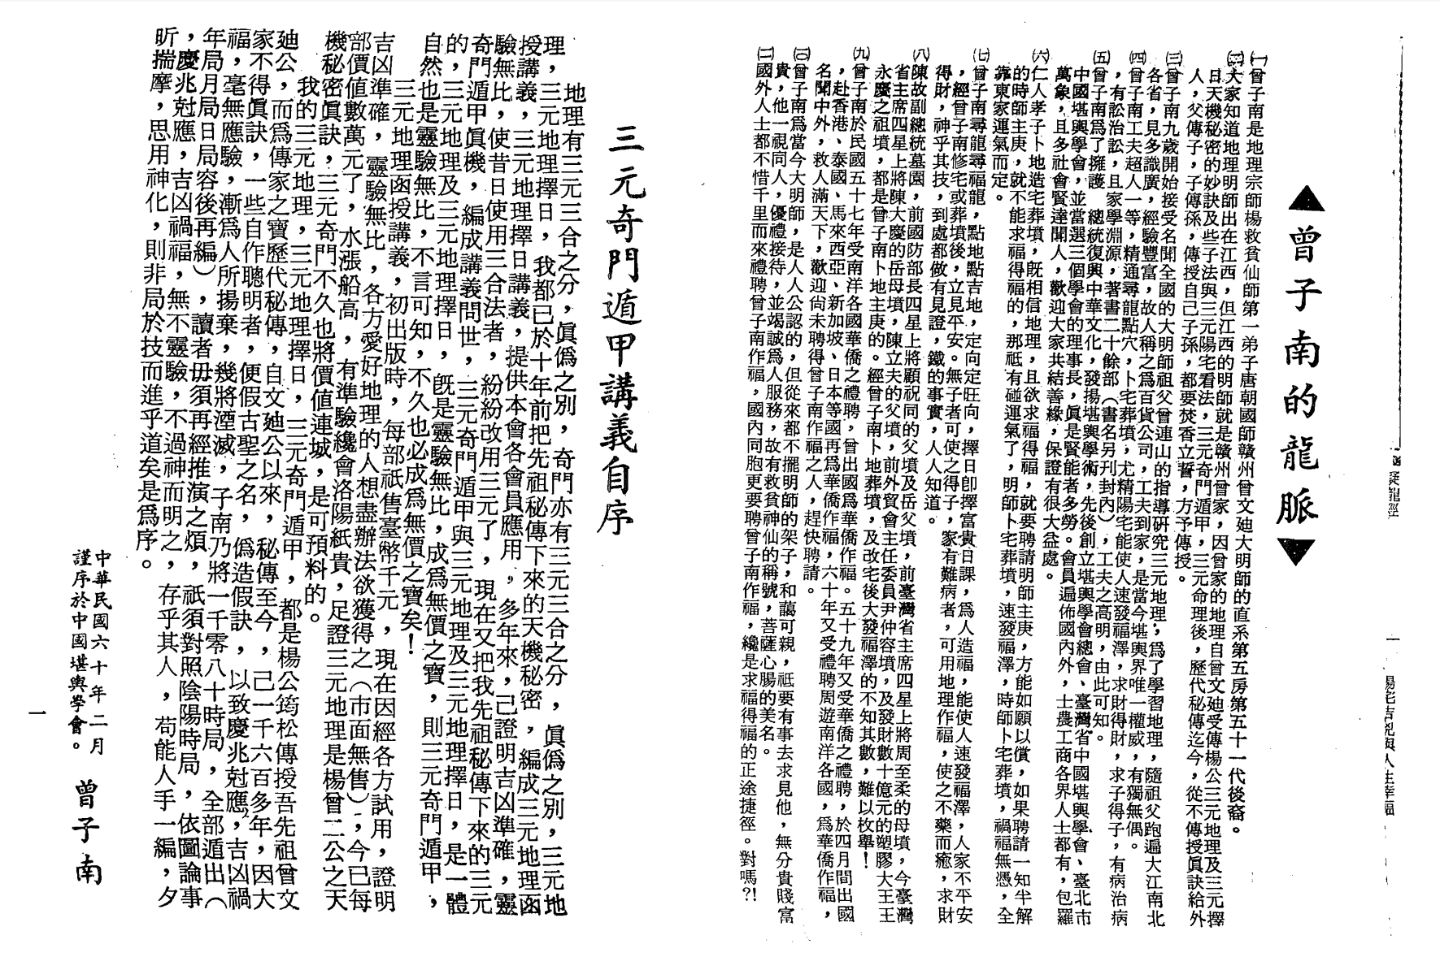 一 陽宅吉凶與人生幸福
▲曾子南的龍脈▼
㈠曾子南是地理宗師楊救貧仙師第一弟子唐朝國師贛州曾文辿大明師的直系第五房第五十一代後裔。
㈡大家知道地理明師出在江西，但江西的明師就是贛州曾家，因曾家的地理自曾文辿受傳楊公三元地理及三元擇
日天機秘密的妙訣及些子法與三元陽宅看法，三元奇門遁甲，三元命理後，歷代秘傳迄今，從不傳授眞訣給外
人，父傳子，子傳孫，傳授自己子孫，都要焚香立誓，方予傳授。
㈢曾子南九歲開始接受名聞全國的大明師祖父曾連山的指導硏究三元地理，爲了學習地理，隨祖父跑遍大江南北
各省，見多識廣，經驗豐富，故人稱之爲百貨公司，工夫到家，是當今堪輿界唯一權威，有獨無偶。
㈣曾子南工夫超人一等，精通尋龍點穴，卜宅葬墳，尤精陽宅能使人速發福澤，求財得財，求子得子，有病治病
，有訟治訟，且家學淵源，著書二十餘部（書名另刊封內），工夫之高明，由此可知。
㈤曾子南爲了擁護　總統復興中華文化，發揚堪輿學術，先後創立堪輿學會總會、臺灣省中國堪輿學會、臺北市
中國堪輿學會，並當選三個學會的理事長，眞是賢能者多勞。會員遍佈國內外，士農工商各界人士都有，包羅
萬象，且多社會賢達聞人，歡迎大家共結善緣，保證有很大益處。
㈥仁人孝子卜地造宅葬墳，旣相信地理，且欲求福得福，就要聘請明師主庚，方能如願以償，如果聘請一知半解
的時師主庚，就不能求福得福的，那祇有碰運氣了，明師卜宅葬墳，速發福澤，時師卜宅葬墳，禍福無憑，全
靠東家運氣而定。
㈦曾子南尋龍尋福龍，點地點吉地，定向定旺向，擇日卽擇富貴日課，爲人造福，能使人速發福澤，人家不平安
，經曾子南修宅或葬墳後，立見平安。無子者可使之得子，家有難病者，可用地理作福，使之不藥而癒，求財
得財，神乎其技，到處都做有見證，鐵的事實，人人知道。
㈧陳故副總統墓園，前國防部長四星上將顧祝同的父墳及岳父墳，前臺灣省主席四星上將周至柔的母墳，今臺灣
省主席四星上將陳大慶的岳母墳，陳立夫的父墳，前外貿會主任委員尹仲容墳，及發財數十億元的塑膠大王王
永慶之祖墳，都是曾子南卜地主庚的。經曾子南卜地葬墳，及改宅後大發福澤的不知其數，難以枚舉！
㈨曾子南於民國五十七年受南洋各國華僑之禮聘，曾出國爲華僑作福。五十九年又受華僑之禮聘，於四月間出國
，赴香港、泰國、馬來西亞、新加坡、日本等國再爲華僑作福，六十年又受禮聘周遊南洋各國，爲華僑作福，
名聞中外，救人滿天下，歡迎尙未聘得曾子南作福之人，趕快聘請。
㈩曾子南爲當今大明師，是人人公認的，但從來都不擺明師的架子，和藹可親，祇要有事去求見他，無分貴賤富
貴，他一視同人，優禮接待，並竭誠爲人服務，故有救貧神仙的稱號，菩薩心腸的美名。
㈡國外人士都不惜千里而來禮聘曾子南作福，國內同胞更要聘曾子南作福，纔是求福得福的正途捷徑。對嗎？！
三元奇門遁甲講義自序
地理有三元三合之分，眞僞之別，奇門亦有三元三合之分，眞僞之別，三元地
理，三元地理擇日，我都已於十年前把先祖秘傳下來的天機秘密，編成三元地理函
授講義，三元地理擇日講義，提供本會各會員應用，多年來，己證明吉凶準確，靈
驗無比，使昔日使用三合法者，紛紛改用三元了，現在又把我先祖秘傳下來的三元
奇門遁甲眞機，編成講義問世，三元奇門遁甲與三元地理及三元地理擇日，是一體
的，三元地理及三元地理擇日，旣是靈驗無比，成爲無價之寶，則三元奇門遁甲，
自然也是靈驗無比，不言可知，不久也必成爲無價之寶矣！
三元地理函授講義，初出版時，每部祇售臺幣千元，現在因經各方試用，證明
吉凶準確，靈驗無比，各方愛好地理的人想盡辦法欲獲得之（市面無售），今已每
部價值數萬元了，水漲船高，有準驗纔會洛陽紙貴，足證三元地理是楊曾二公之天
機秘密眞訣，三元奇門不久也將價值連城，是可預料的。
我的三元地理，三元地理擇日，三元奇門遁甲，都是楊公筠松傳授吾先祖曾文
辿公，而爲傳家之寶歷代秘傳，自文辿公以來，秘傳至今，己一千六百多年，因大
家不得眞訣，一些自作聰明者，便假古聖之名，僞造假訣，以致慶兆尅應，吉凶禍
福，毫無應驗，漸爲人所揚棄，幾將湮滅，子南乃將一千零八十時局，全部遁出（
年局月局日局容後再編），讀者毋須再經推演之煩，祇須對照陰陽時局，依圖論事
，慶兆尅應，吉凶禍福，無不靈驗，不過神而明之，存乎其人，苟能人手一編，夕
昕揣摩，思用神化，則非局於技而進乎道矣是爲序。
中華民國六十年二月
謹序於中國堪輿學會。　曾子南
一